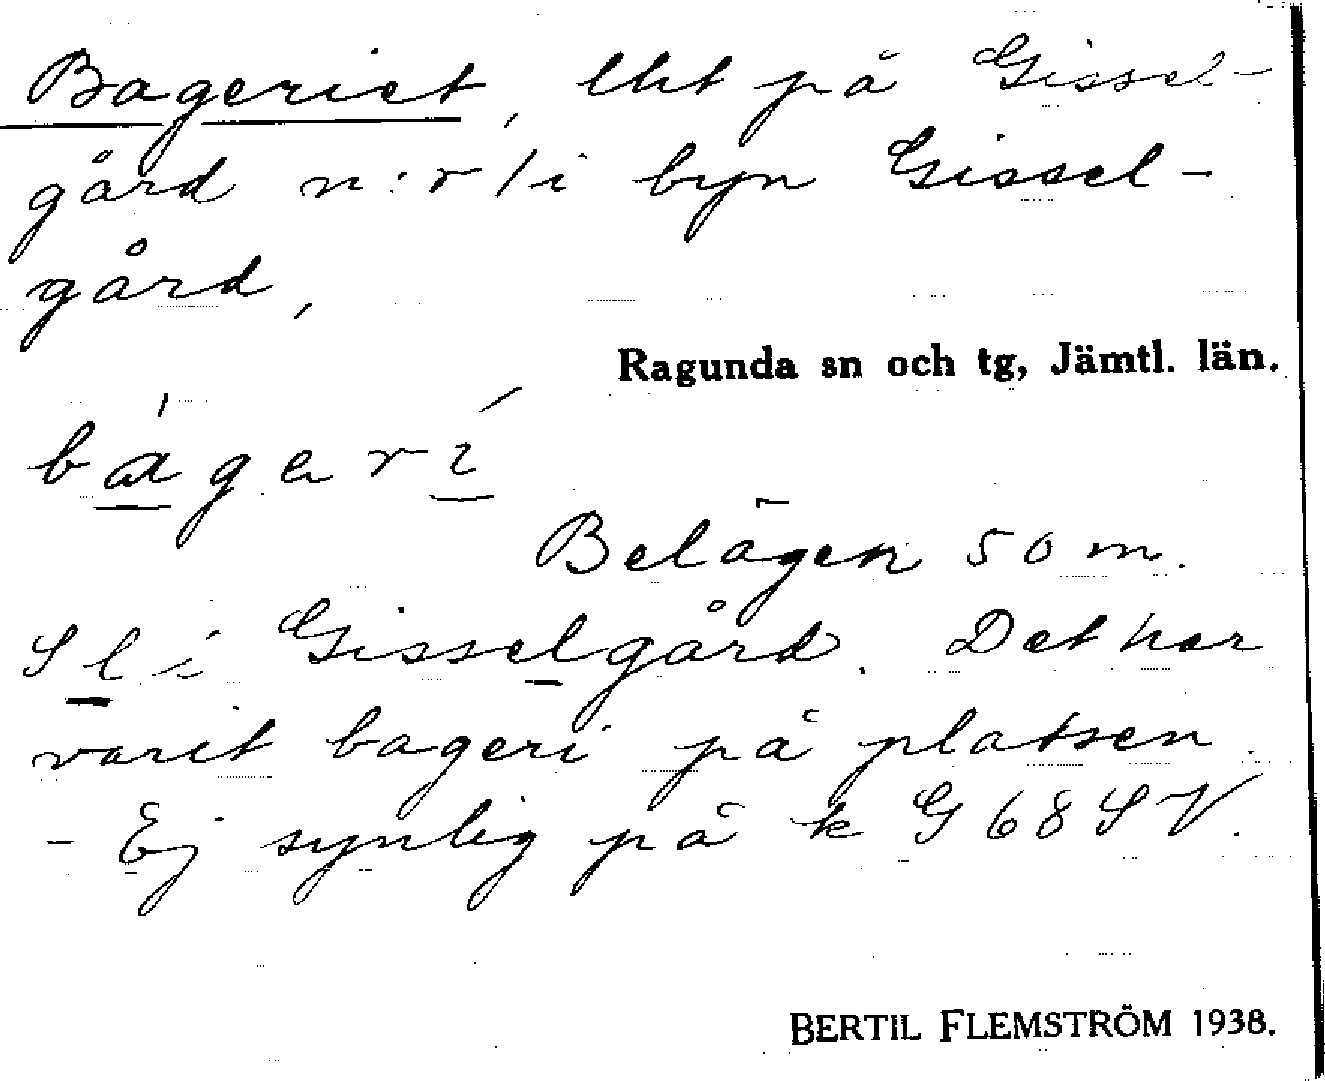 Bageriet, lht på Gissel-
gård n:r 1 i byn Gissel-
gård,
Ragunda sn och tg, Jämtl. län.
bágerí
Belägen 50 m.
S l i Gisselgård. Det har
varit bageri på platsen.
- Ej synlig på k G 68 SV.
BERTIL FLEMSTRÖM 1938.